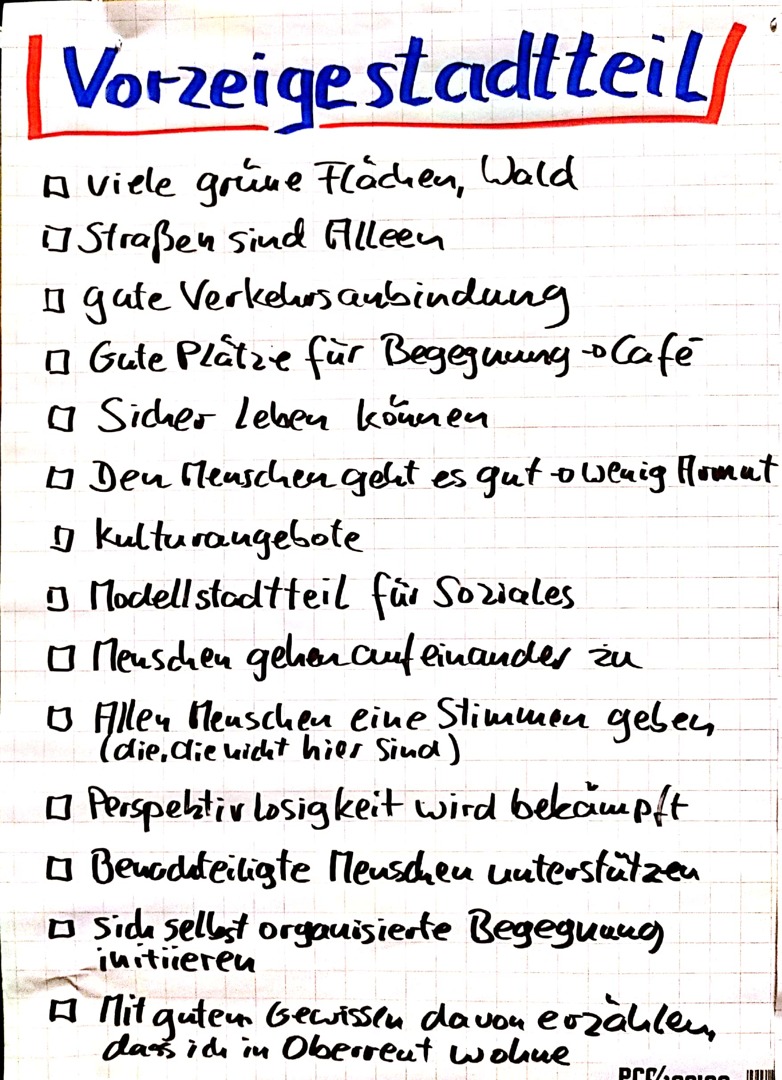 Vorzeigestadtteil
viele grüne Flächen, Wald
Straßen sind Alleen
gute Verkehrsanbindung
Gute Plätze für Begegnung → Café
Sicher leben können
Den Menschen geht es gut → wenig Armut
Kulturangebote
Modellstadtteil für Soziales
Menschen gehen aufeinander zu
Allen Menschen eine Stimmen geben
(die, die nicht hier sind)
Perspektivlosigkeit wird bekämpft
Benachteiligte Menschen unterstützen
Sich selbst organisierte Begegnung
initiieren
Mit gutem Gewissen davon erzählen,
dass ich in Oberreut wohne